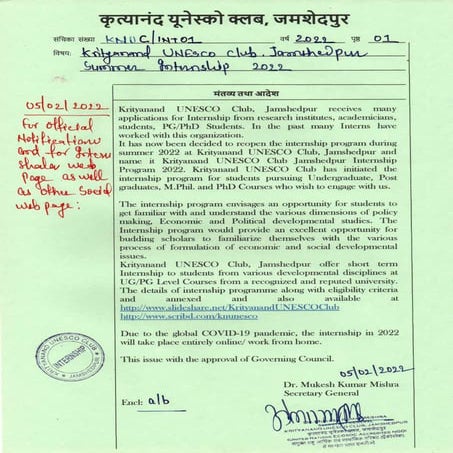 कृत्यानंद यूनेस्को क्लब, जमशेदपुर
संचिका संख्या KNUC/INT01 वर्ष 2022 पृष्ठ 01
विषय: Krityanand UNESCO Club, Jamshedpur
Summer Internship 2022
मंतव्य तथा आदेश
05/02/2022
For official
Notification
and for Intern
Shalas web
Page as well
as other Social
web page:
Krityanand UNESCO Club, Jamshedpur receives many
applications for Internship from research institutes, academicians,
students, PG/PhD Students. In the past many Interns have
worked with this organization.
It has now been decided to reopen the internship program during
summer 2022 at Krityanand UNESCO Club, Jamshedpur and
name it Krityanand UNESCO Club Jamshedpur Internship
Program 2022. Krityanand UNESCO Club has initiated the
internship program for students pursuing Undergraduate, Post
graduates, M.Phil. and PhD Courses who wish to engage with us.
The internship program envisages an opportunity for students to
get familiar with and understand the various dimensions of policy
making, Economic and Political developmental studies. The
Internship program would provide an excellent opportunity for
budding scholars to familiarize themselves with the various
process of formulation of economic and social developmental
issues.
Krityanand UNESCO Club, Jamshedpur offer short term
Internship to students from various developmental disciplines at
UG/PG Level Courses from a recognized and reputed university.
The details of internship programme along with eligibility criteria
and annexed and also available at
http://www.slideshare.net/KrityanandUNESCOClub
http://www.scribd.com/knunesco
Due to the global COVID-19 pandemic, the internship in 2022
will take place entirely online/ work from home.
This issue with the approval of Governing Council.
05/02/2022
Dr. Mukesh Kumar Mishra
Secretary General
Encl: a/b
KRITYANAND UNESCO CLUB
INTERNSHIP
JAMSHEDPUR
KRITYANAND UNESCO CLUB, JAMSHEDPUR